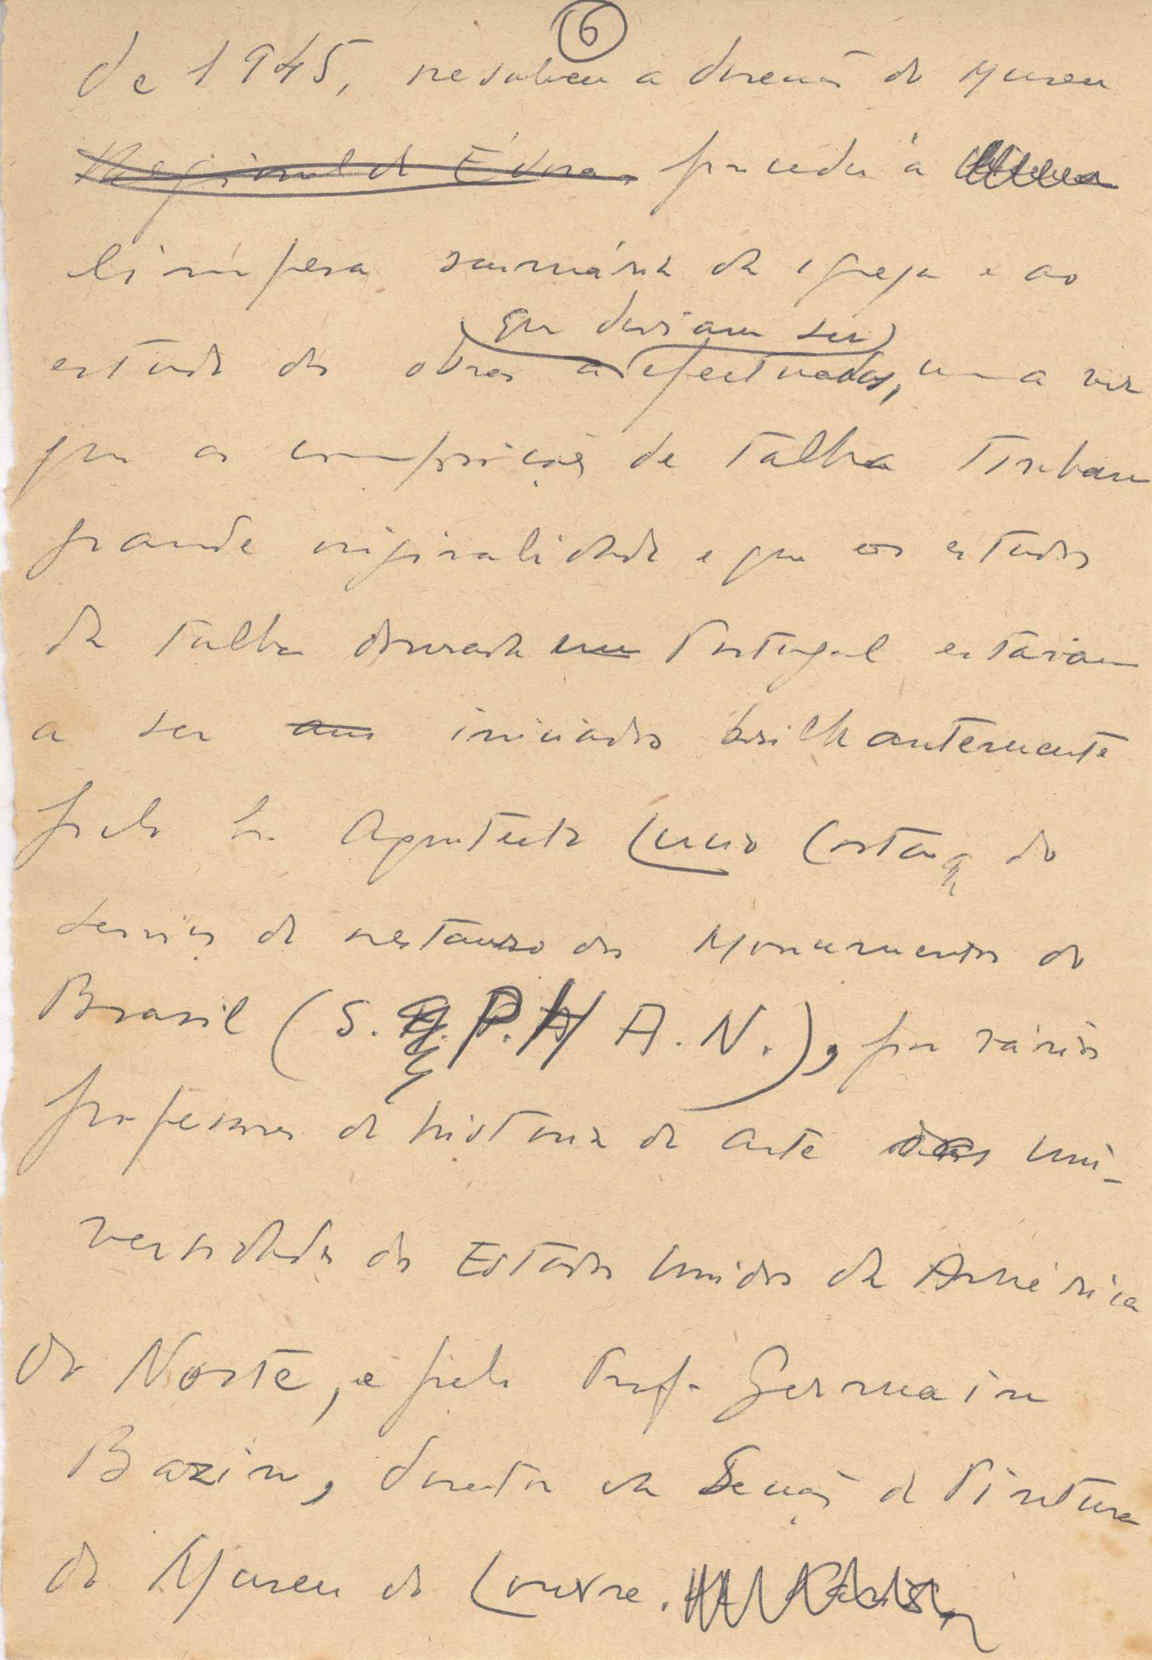 6
de 1945, resolveu a direcção do Museu
Regional de Évora, proceder à
limpesa sumária da igreja e ao
que deviam ser
estudo das obras a efectuadas, uma vez
que as composições de talha tinham
grande originalidade e que os estudos
da talha dourada em Portugal estavam
a ser iniciados brilhantemente
pelo Sr. Arquitecto Lucio Costa, do
serviço de restauro dos Monumentos do
Brasil (S. P. H A. N.), por vários
professores de historia da arte das Uni-
versidades dos Estados Unidos da América
do Norte, e pelo Prof. Germain
Bazin, director da Secção de Pintura
do Museu do Louvre.